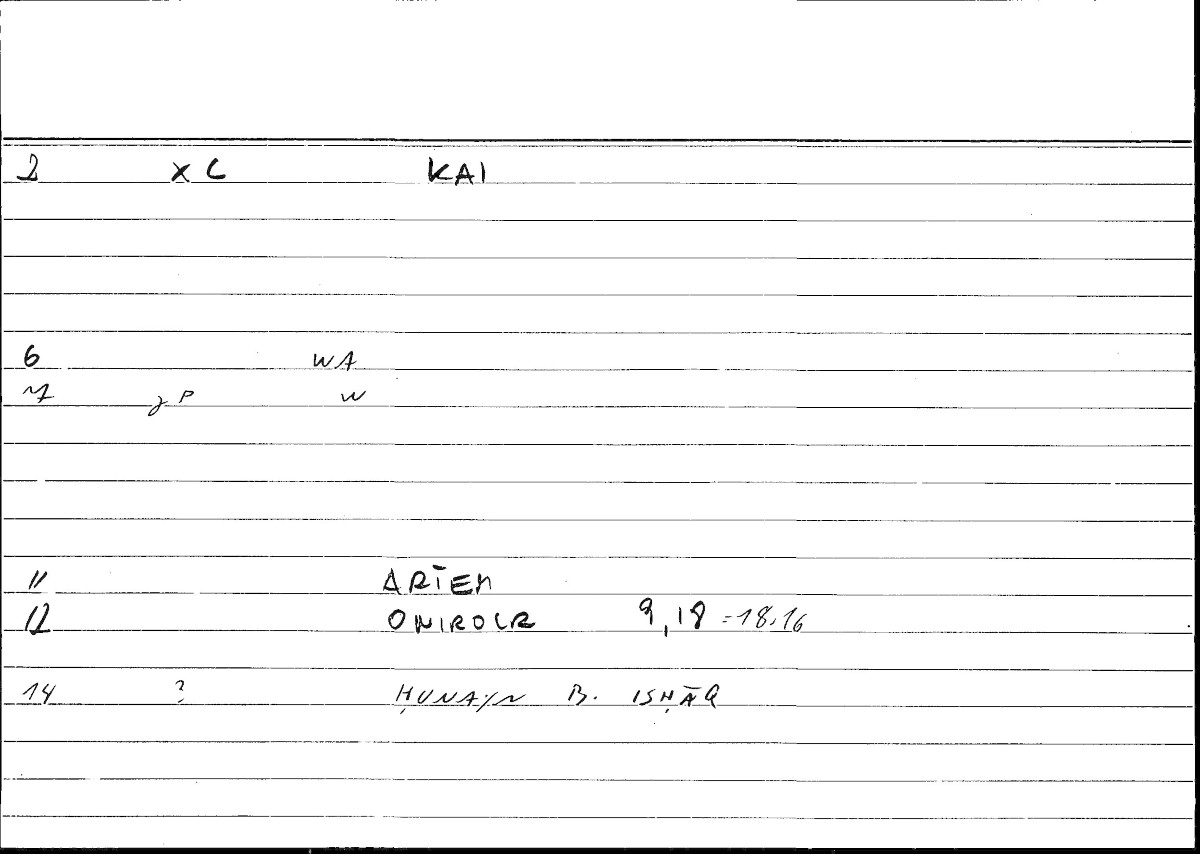 2 x C KAI
6 WA
7 zP W
11 ARTEM
12 ONIROCR 9,18 = 18.16
14 ? ḤUNAYN B. ISḤĀQ